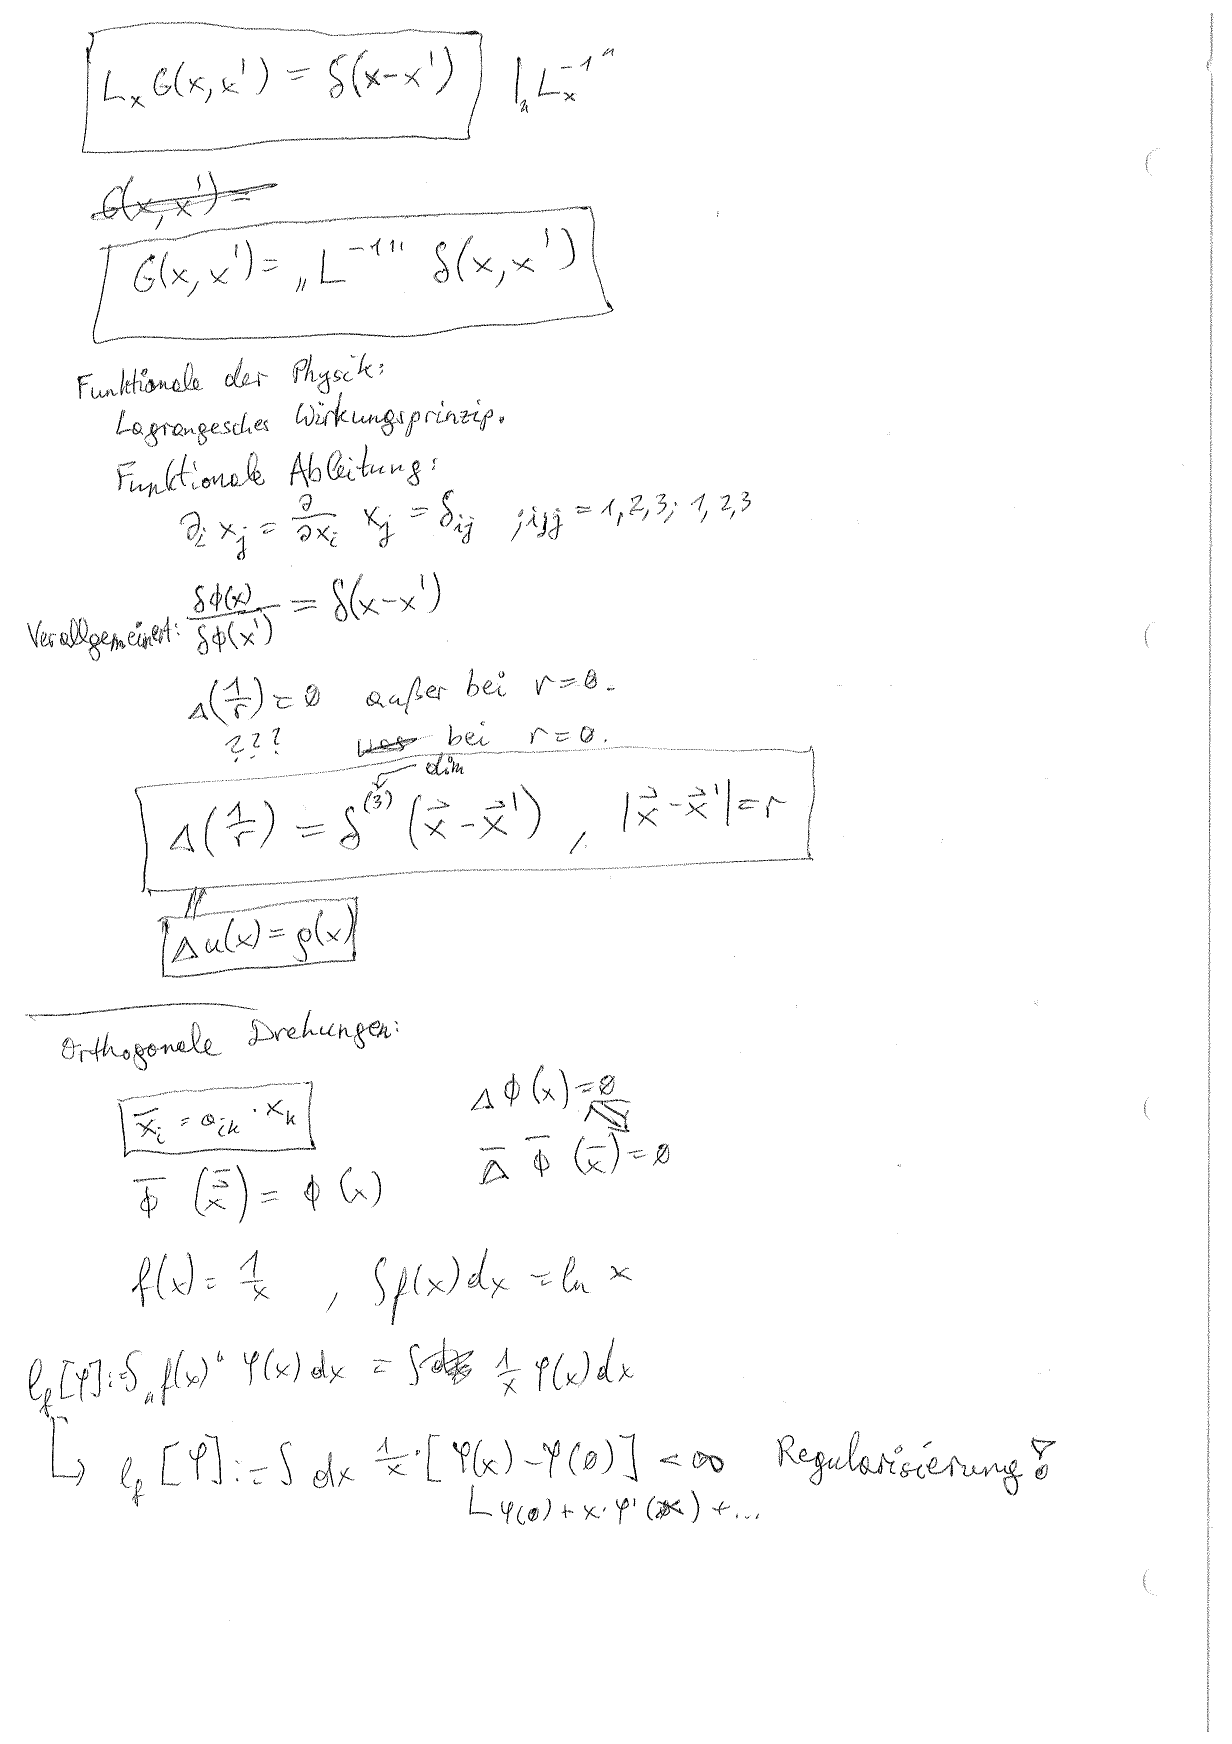 L_x G(x,x') = δ(x-x') | „L_x^{-1}“
G(x,x') =
G(x,x') = „L^{-1}“ δ(x,x')
Funktionale der Physik:
Lagrangesches Wirkungsprinzip.
Funktionale Ableitung:
∂_i x_j = ∂/∂x_i x_j = δ_ij ; i,j = 1,2,3; 1,2,3
Verallgemeinert: δφ(x)/δφ(x') = δ(x-x')
Δ(1/r) = 0 außer bei r=0.
??? was bei r=0.
dim
Δ(1/r) = δ^(3) (x⃗ - x⃗'), |x⃗ - x⃗'| = r
Δu(x) = ρ(x)
Orthogonale Drehungen:
x̄_i = a_ik · x_k
Δ φ(x) = 0
φ̄ (x̄⃗) = φ(x)
Δ̄ φ̄ (x̄) = 0
f(x) = 1/x , ∫f(x)dx = ln x
l_f[φ] := ∫ „f(x)“ φ(x) dx = ∫ 1/x φ(x) dx
↳ l_f [φ] := ∫ dx 1/x · [φ(x) - φ(0)] < ∞ Regularisierung!
φ(0) + x · φ'(x) + ...